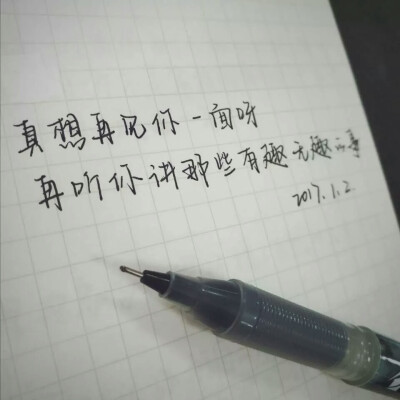 真想再见你一面呀
再听你讲那些有趣无趣的事
2017.1.2.